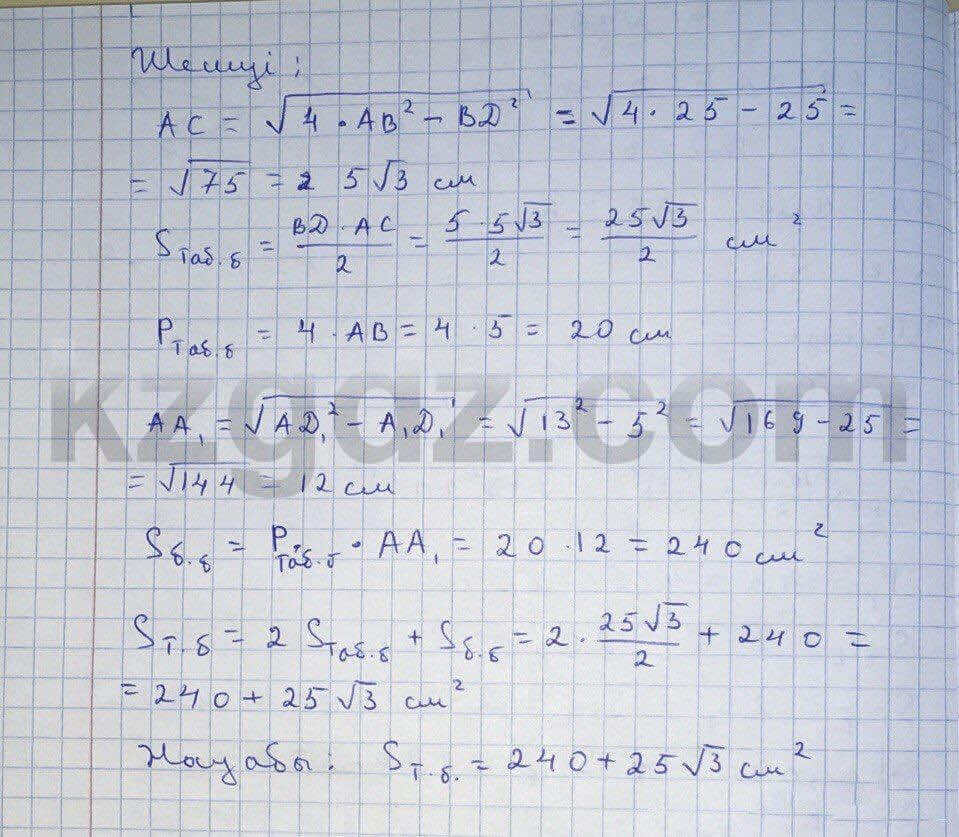 Шешуі:
AC = √(4·AB² − BD²) = √(4·25 − 25) =
= √75 = 5√3 см
Sтаб.б = (BD·AC)/2 = (5·5√3)/2 = (25√3)/2 см²
Pтаб.б = 4·AB = 4·5 = 20 см
kzgdz.com
AA₁ = √(AD₁² − A₁D₁²) = √(13² − 5²) = √(169 − 25) =
= √144 = 12 см
Sб.б = Pтаб.б · AA₁ = 20·12 = 240 см²
Sт.б = 2 Sтаб.б + Sб.б = 2·(25√3)/2 + 240 =
= 240 + 25√3 см²
Жауабы: Sт.б. = 240 + 25√3 см²